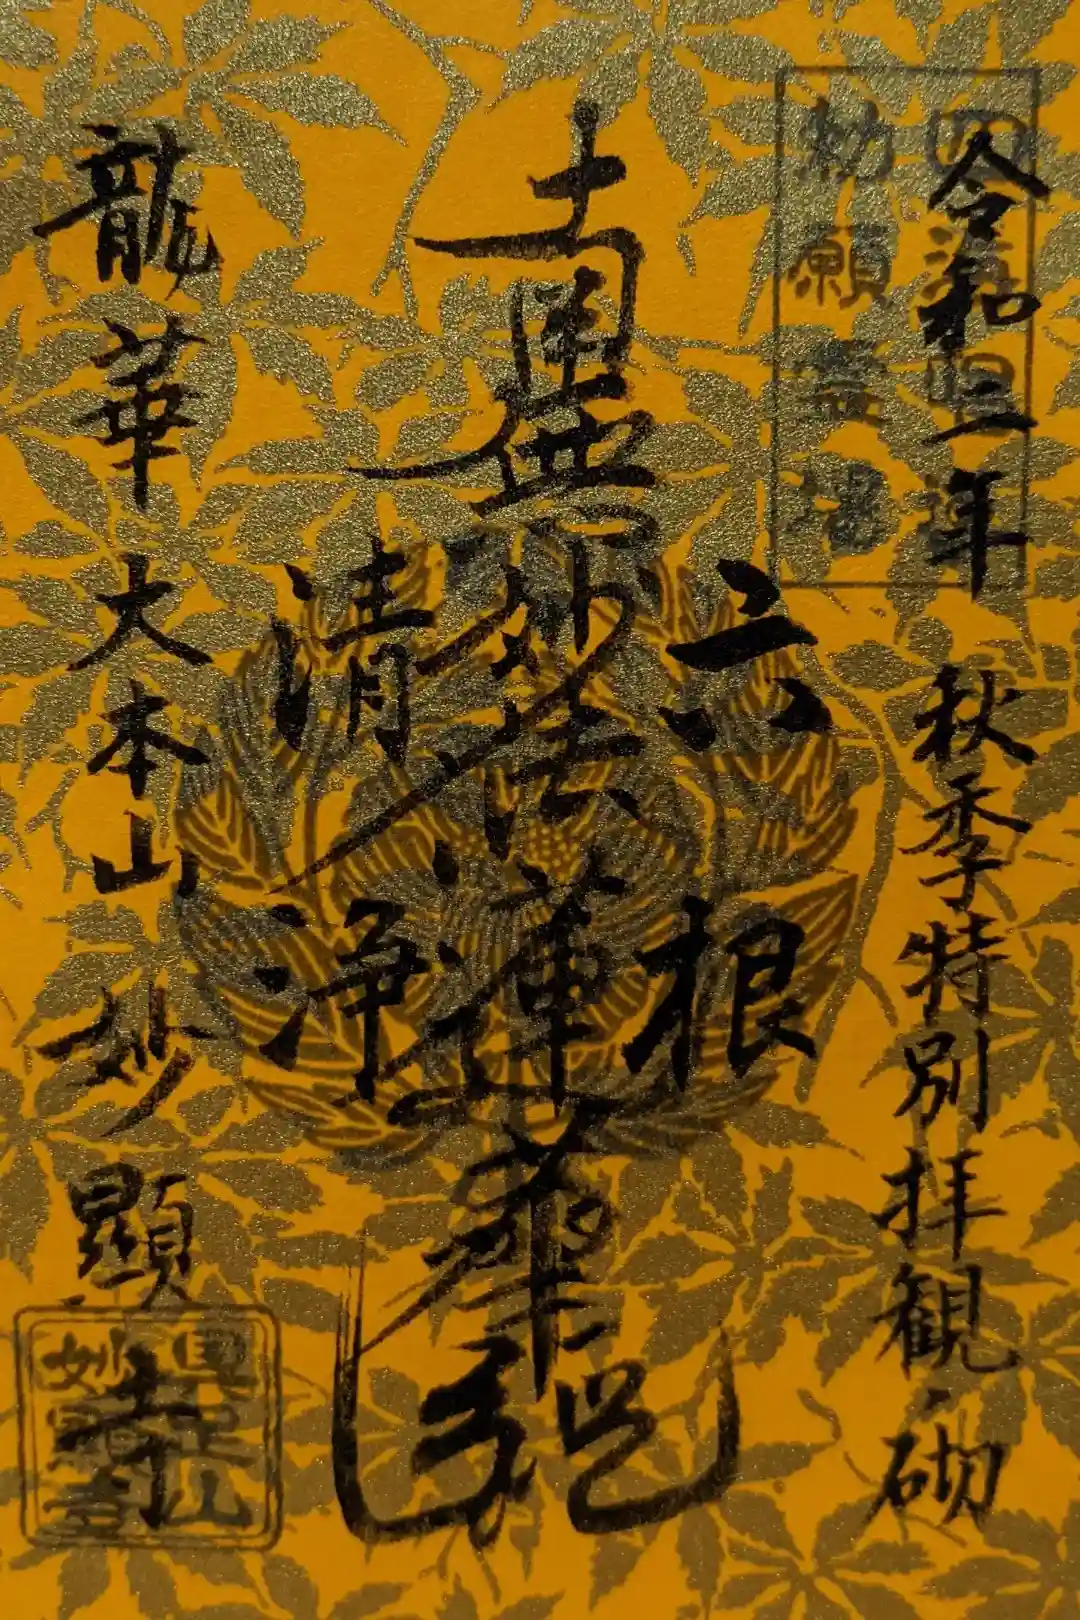 四海唱導
勅願霊場
令和三年 秋季特別拝観ノ砌
六根
南無妙法蓮華経
清浄
龍華 大本山 妙顯寺
具足山
妙顯寺